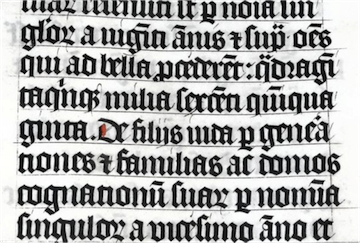 suar recensiti st p noīa sin
gĺoꝝ a uigīti ānis ⁊ sup̄ oēs
qui ad bella p̄cederēt: q̄dragī
taq̇nqꝫ milia sexcēti qūiqua
ginta. De filijs iuda p genēa
tiones ⁊ familias ac domos
cognationū suaꝝ p nomīa
singuloꝝ a uicesimo āno et